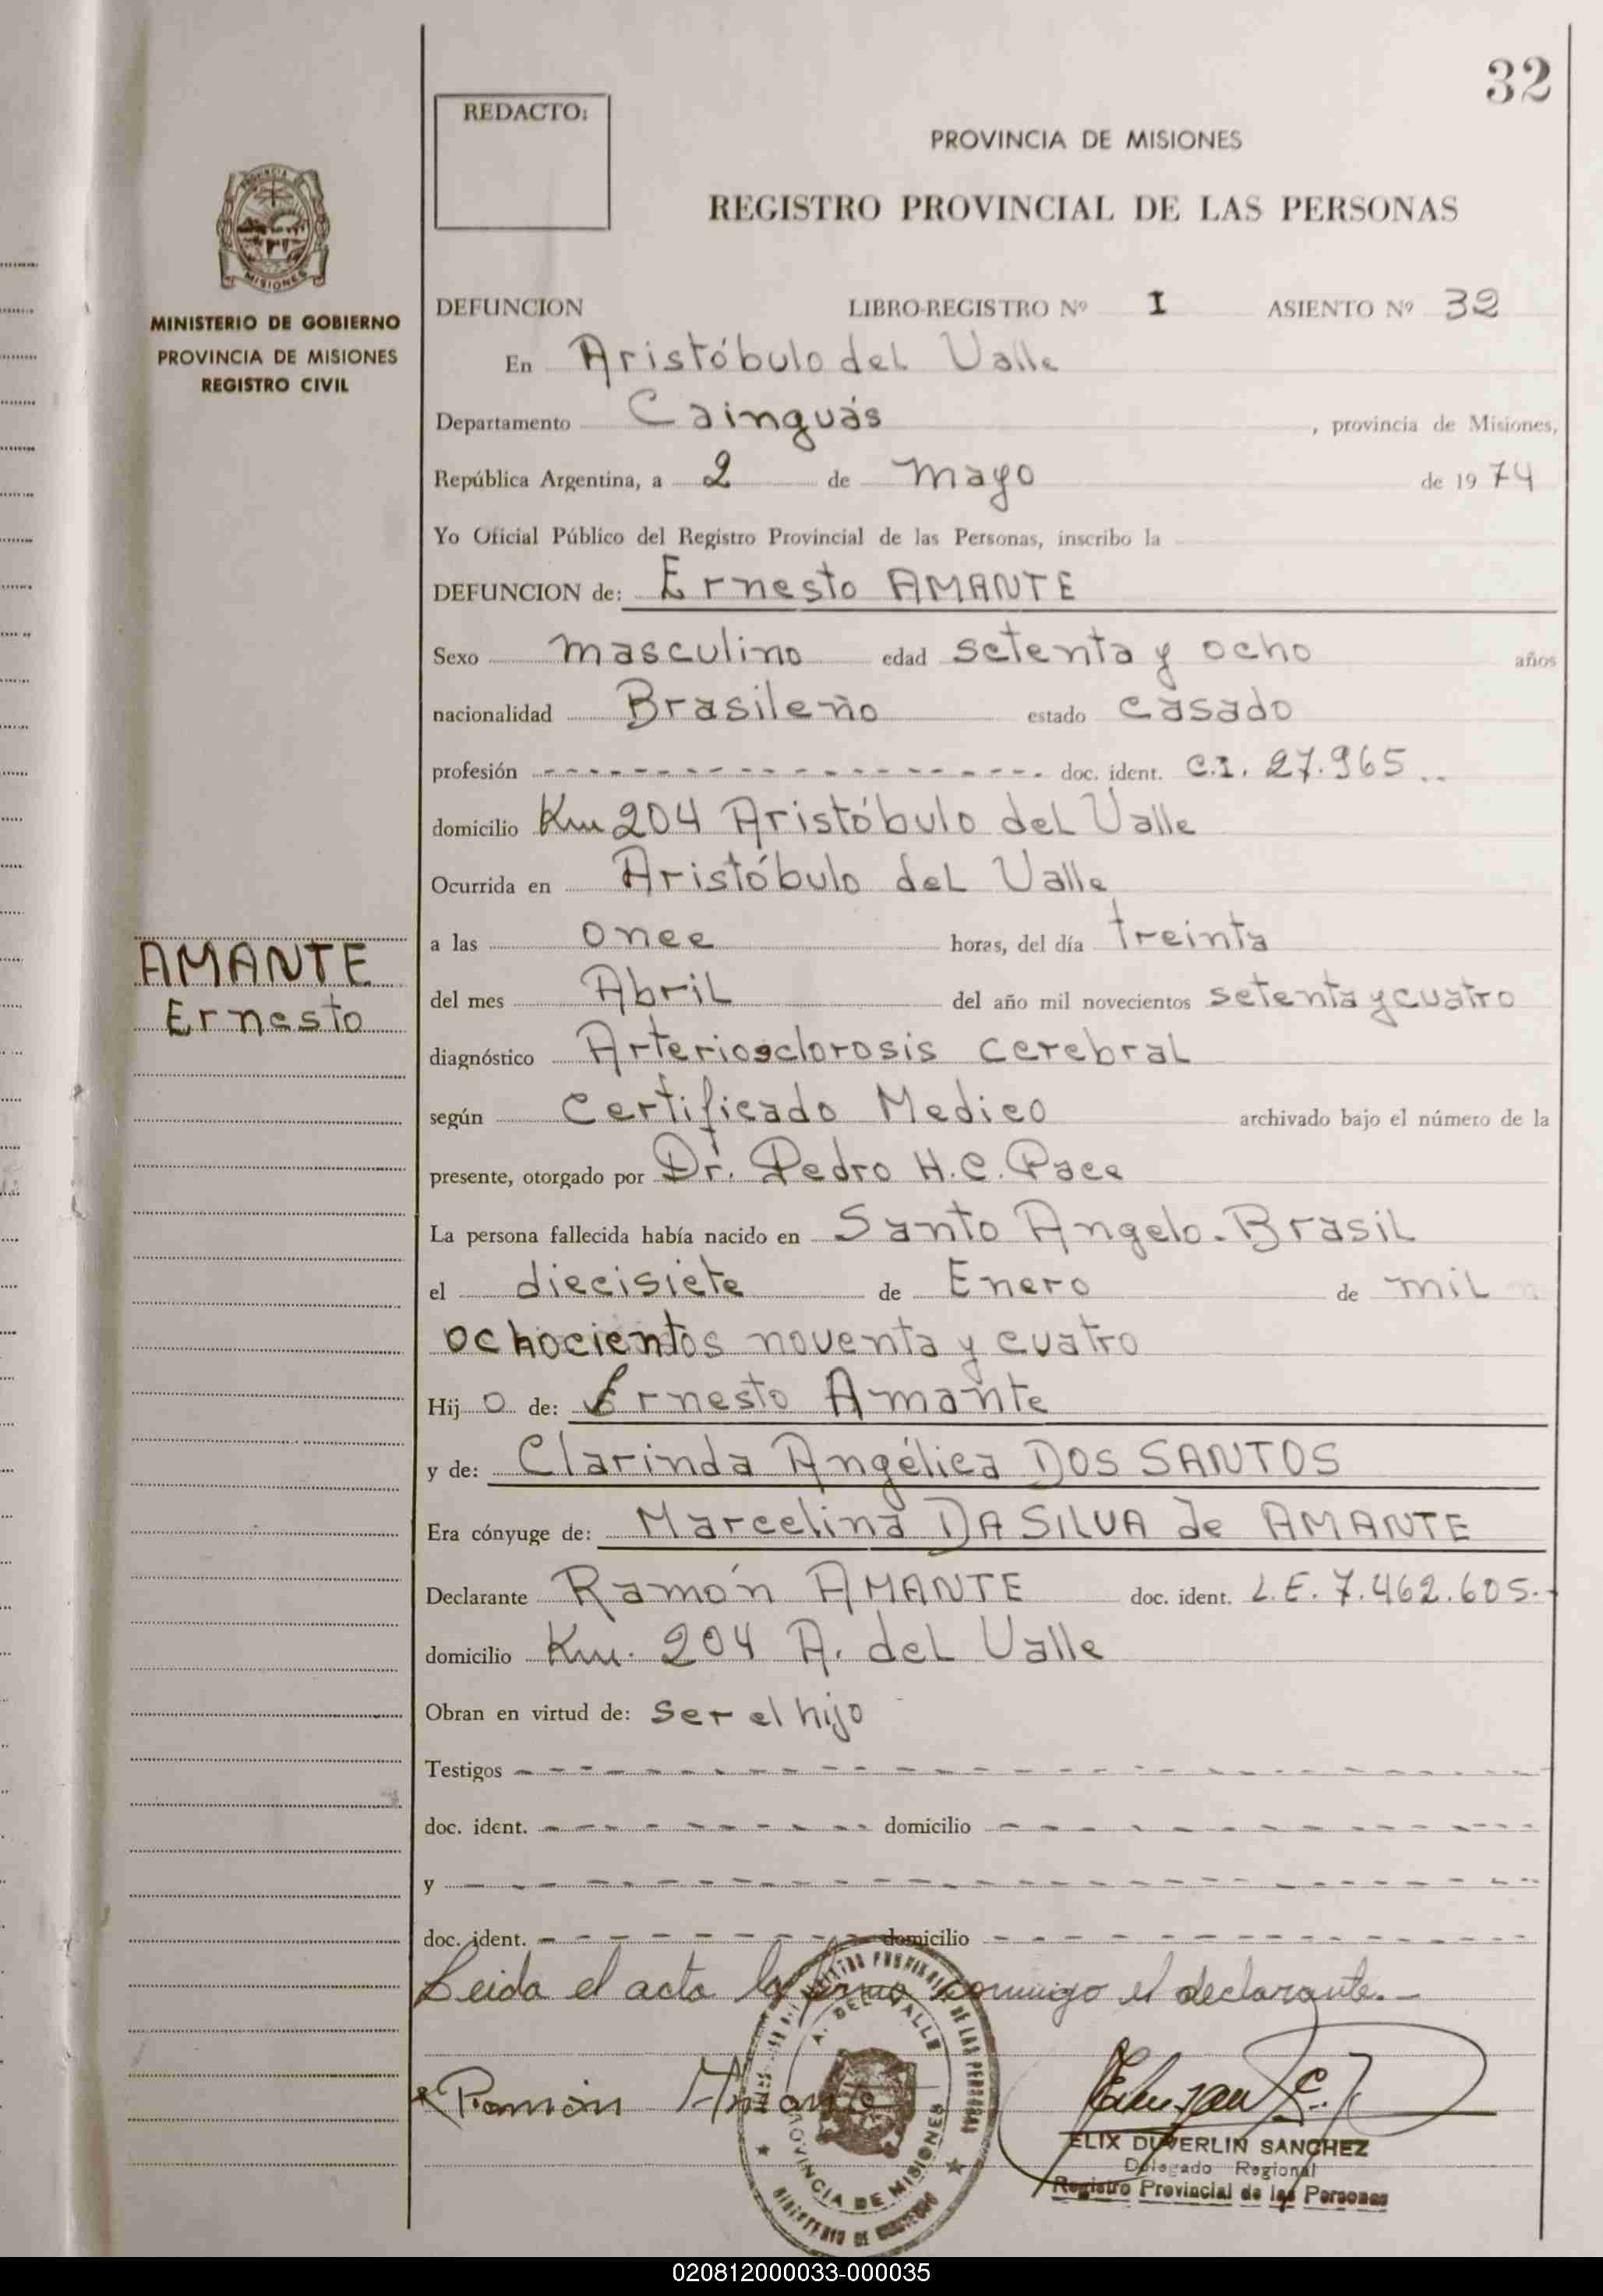 32
REDACTO:
PROVINCIA DE MISIONES
REGISTRO PROVINCIAL DE LAS PERSONAS
MISIONES
MINISTERIO DE GOBIERNO
PROVINCIA DE MISIONES
REGISTRO CIVIL
DEFUNCION LIBRO-REGISTRO Nº I ASIENTO Nº 32
En Aristóbulo del Valle
Departamento Cainguás , provincia de Misiones,
República Argentina, a 2 de mayo de 1974
Yo Oficial Público del Registro Provincial de las Personas, inscribo la
DEFUNCION de: Ernesto AMANTE
Sexo masculino edad setenta y ocho años
nacionalidad Brasileño estado casado
profesión - - - - - - - - - - doc. ident. C.I. 27.965 ..
domicilio Km 204 Aristóbulo del Valle
Ocurrida en Aristóbulo del Valle
a las once horas, del día treinta
AMANTE
Ernesto
del mes Abril del año mil novecientos setenta y cuatro
diagnóstico Arteriosclorosis cerebral
según Certificado Medico archivado bajo el número de la
presente, otorgado por Dr. Pedro H.C. Pace
La persona fallecida había nacido en Santo Angelo-Brasil
el diecisiete de Enero de mil
ochocientos noventa y cuatro
Hijo de: Ernesto Amante
y de: Clarinda Angélica DOS SANTOS
Era cónyuge de: Marcelina DA SILVA de AMANTE
Declarante Ramón AMANTE doc. ident. L.E. 7.462.605.-
domicilio Km. 204 A. del Valle
Obran en virtud de: ser el hijo
Testigos - - - - - - - - - -
doc. ident. - - - - - domicilio - - - - -
y - - - - - - - - - -
doc. ident. - - - - - domicilio - - - - -
Leida el acta la firma conmigo el declarante.-
Ramón Amante
A. DEL VALLE
PROVINCIA DE MISIONES
MINISTERIO DE GOBIERNO
DE LAS PERSONAS
ELIX DUVERLIN SANCHEZ
Delegado Regional
Registro Provincial de las Personas
020812000033-000035